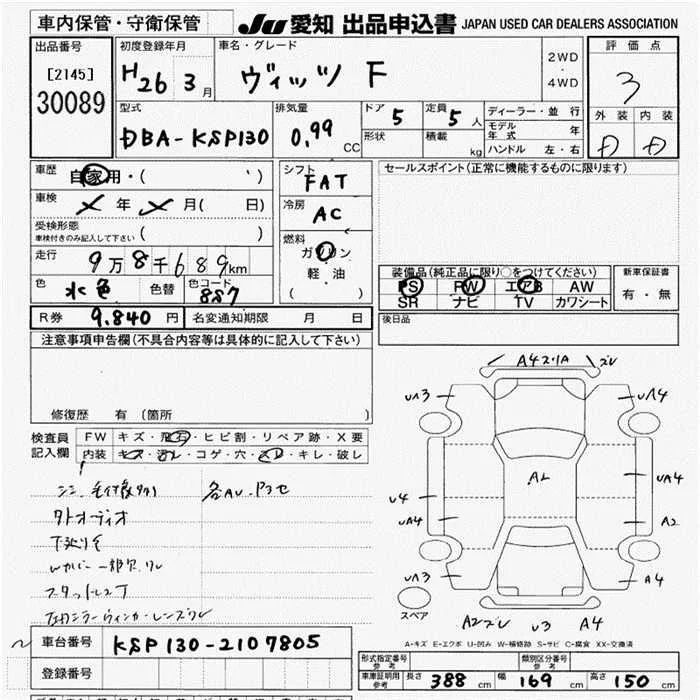 車内保管・守衛保管
JU 愛知 出品申込書 JAPAN USED CAR DEALERS ASSOCIATION
出品番号
[2145]
30089
初度登録年月
H26 3月
車名・グレード
ヴィッツ F
2WD
・
4WD
評価点
3
外装 内装
D D
型式
DBA-KSP130
排気量
0.99 CC
ドア 5
定員 5人
形状
積載 kg
ディーラー・並行
モデル年式 年
ハンドル 左・右
車歴
自家用・( )
車検 年 月( 日)
受検形態
車検付きのみ記入して下さい ( )
走行
9万8千689km
色 水色
色替
色コード
887
シフト
FAT
冷房
AC
燃料
ガソリン
軽油
( )
セールスポイント(正常に機能するものに限ります)
装備品(純正品に限り○をつけてください)
PS PW エアB AW
SR ナビ TV カワシート
新車保証書
有・無
R券 9.840円
名変通知期限 月 日
後日品
注意事項申告欄(不具合内容等は具体的に記入して下さい)
修復歴 有(箇所 )
検査員
記入欄
FW キズ・飛石・ヒビ割・リペア跡・X要
内装 キズ・汚レ・コゲ・穴・スレ・キレ・破レ
各AU.Pスセ
タトオーディオ
下廻りサ
Wカバー一部欠.ワレ
スタットレスT
左ドアミラーウィンカーレンズワレ
A4スリA ズレ
UA3 UA4
A2
U4 UA4
UA4 A2
UA3 A4
スペア
A2ズレ U3 A4
A-キズ E-エクボ U-凹み W-補修跡 S-サビ C-腐食 XX-交換済
車台番号 KSP130-2107805
登録番号
形式指定番号
参考
類別区分番号
参考
車庫証明用
参考
長さ 388 cm
幅 169 cm
高さ 150 cm